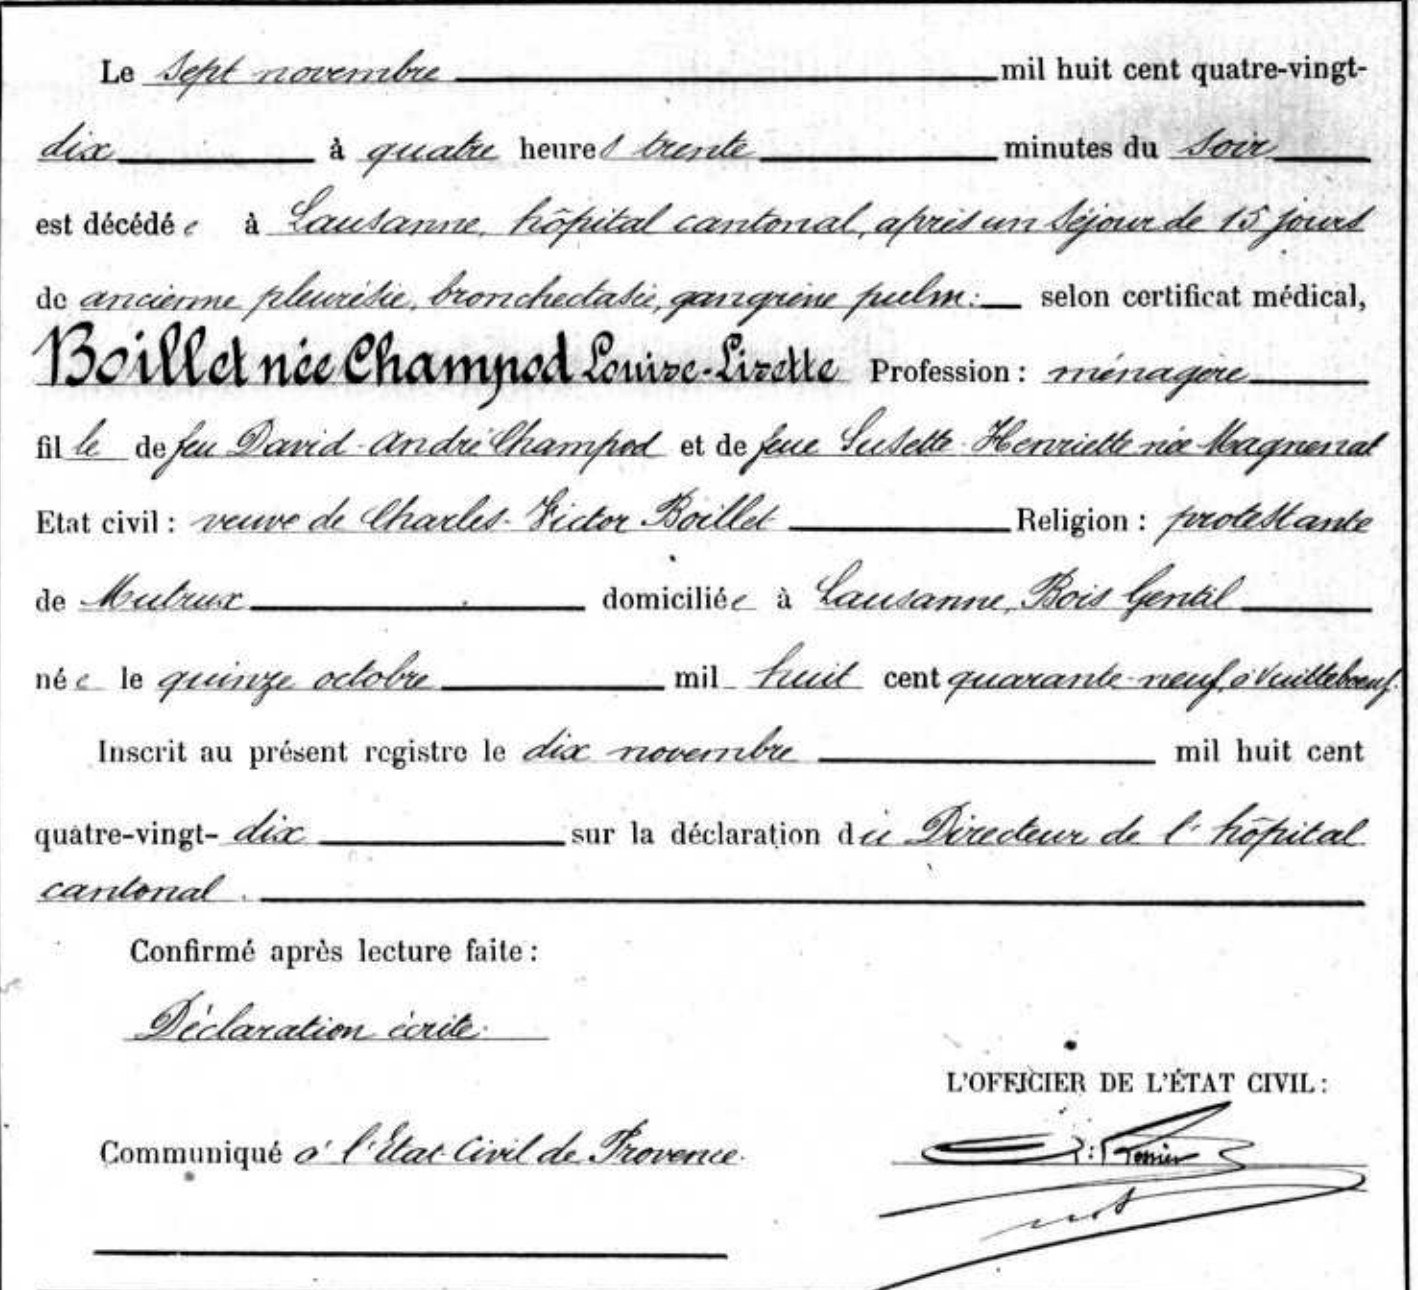 Le sept novembre mil huit cent quatre-vingt-
dix à quatre heures trente minutes du soir
est décédée à Lausanne, hôpital cantonal, après un séjour de 15 jours
de ancienne pleurésie, bronchectasie, gangrène pulm: selon certificat médical,
Boillet née Champod Louise-Lisette Profession: ménagère
fille de feu David-André Champod et de feue Susette-Henriette née Magnenat
Etat civil: veuve de Charles-Victor Boillet Religion: protestante
de Mutrux domiciliée à Lausanne, Bois Gentil
née le quinze octobre mil huit cent quarante-neuf, à Vuitteboeuf.
Inscrit au présent registre le dix novembre mil huit cent
quatre-vingt-dix sur la déclaration du Directeur de l'hôpital
cantonal.
Confirmé après lecture faite:
Déclaration écrite.
L'OFFICIER DE L'ÉTAT CIVIL:
Communiqué à l'Etat Civil de Provence.